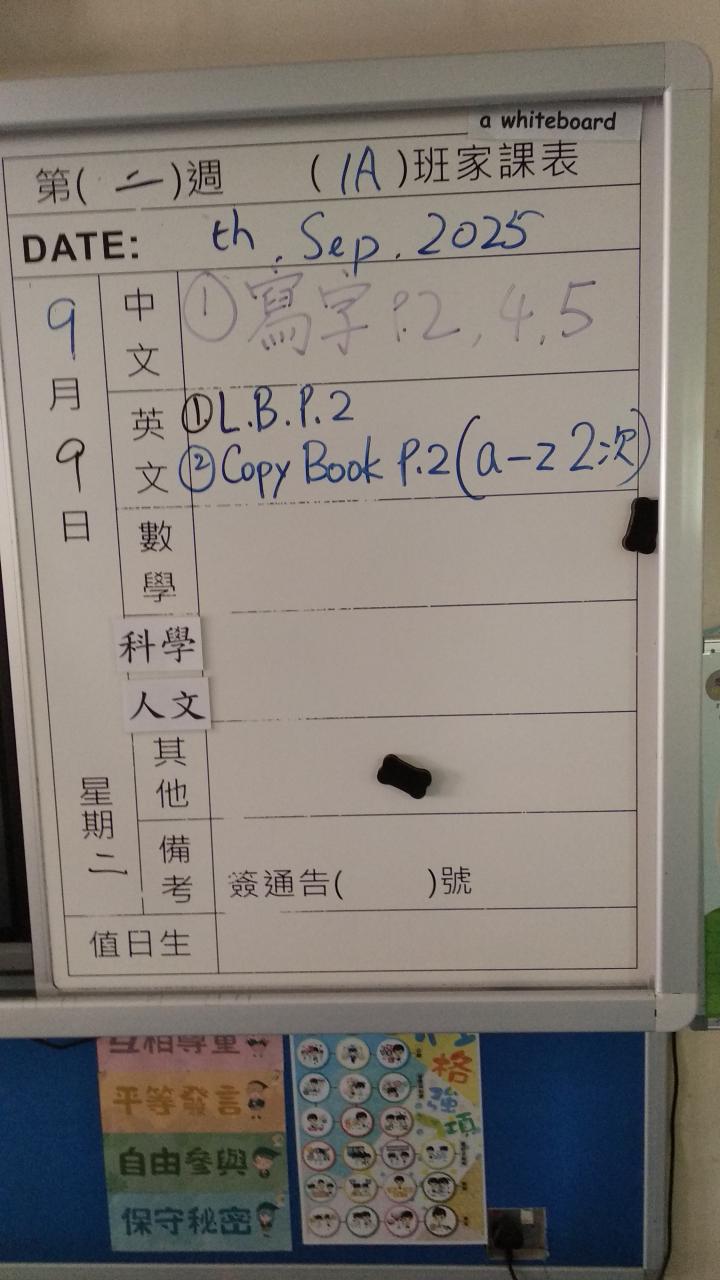 a whiteboard
第(二)週 (1A)班家課表
DATE: th. Sep. 2025
9月9日
星期二
中文
①寫字 P.2, 4, 5
英文
①L.B.P.2
②Copy Book P.2(a-z 2次)
數學
科學
人文
其他
備考
簽通告( )號
值日生
互相尊重
平等發言
自由參與
保守秘密
格
強
項